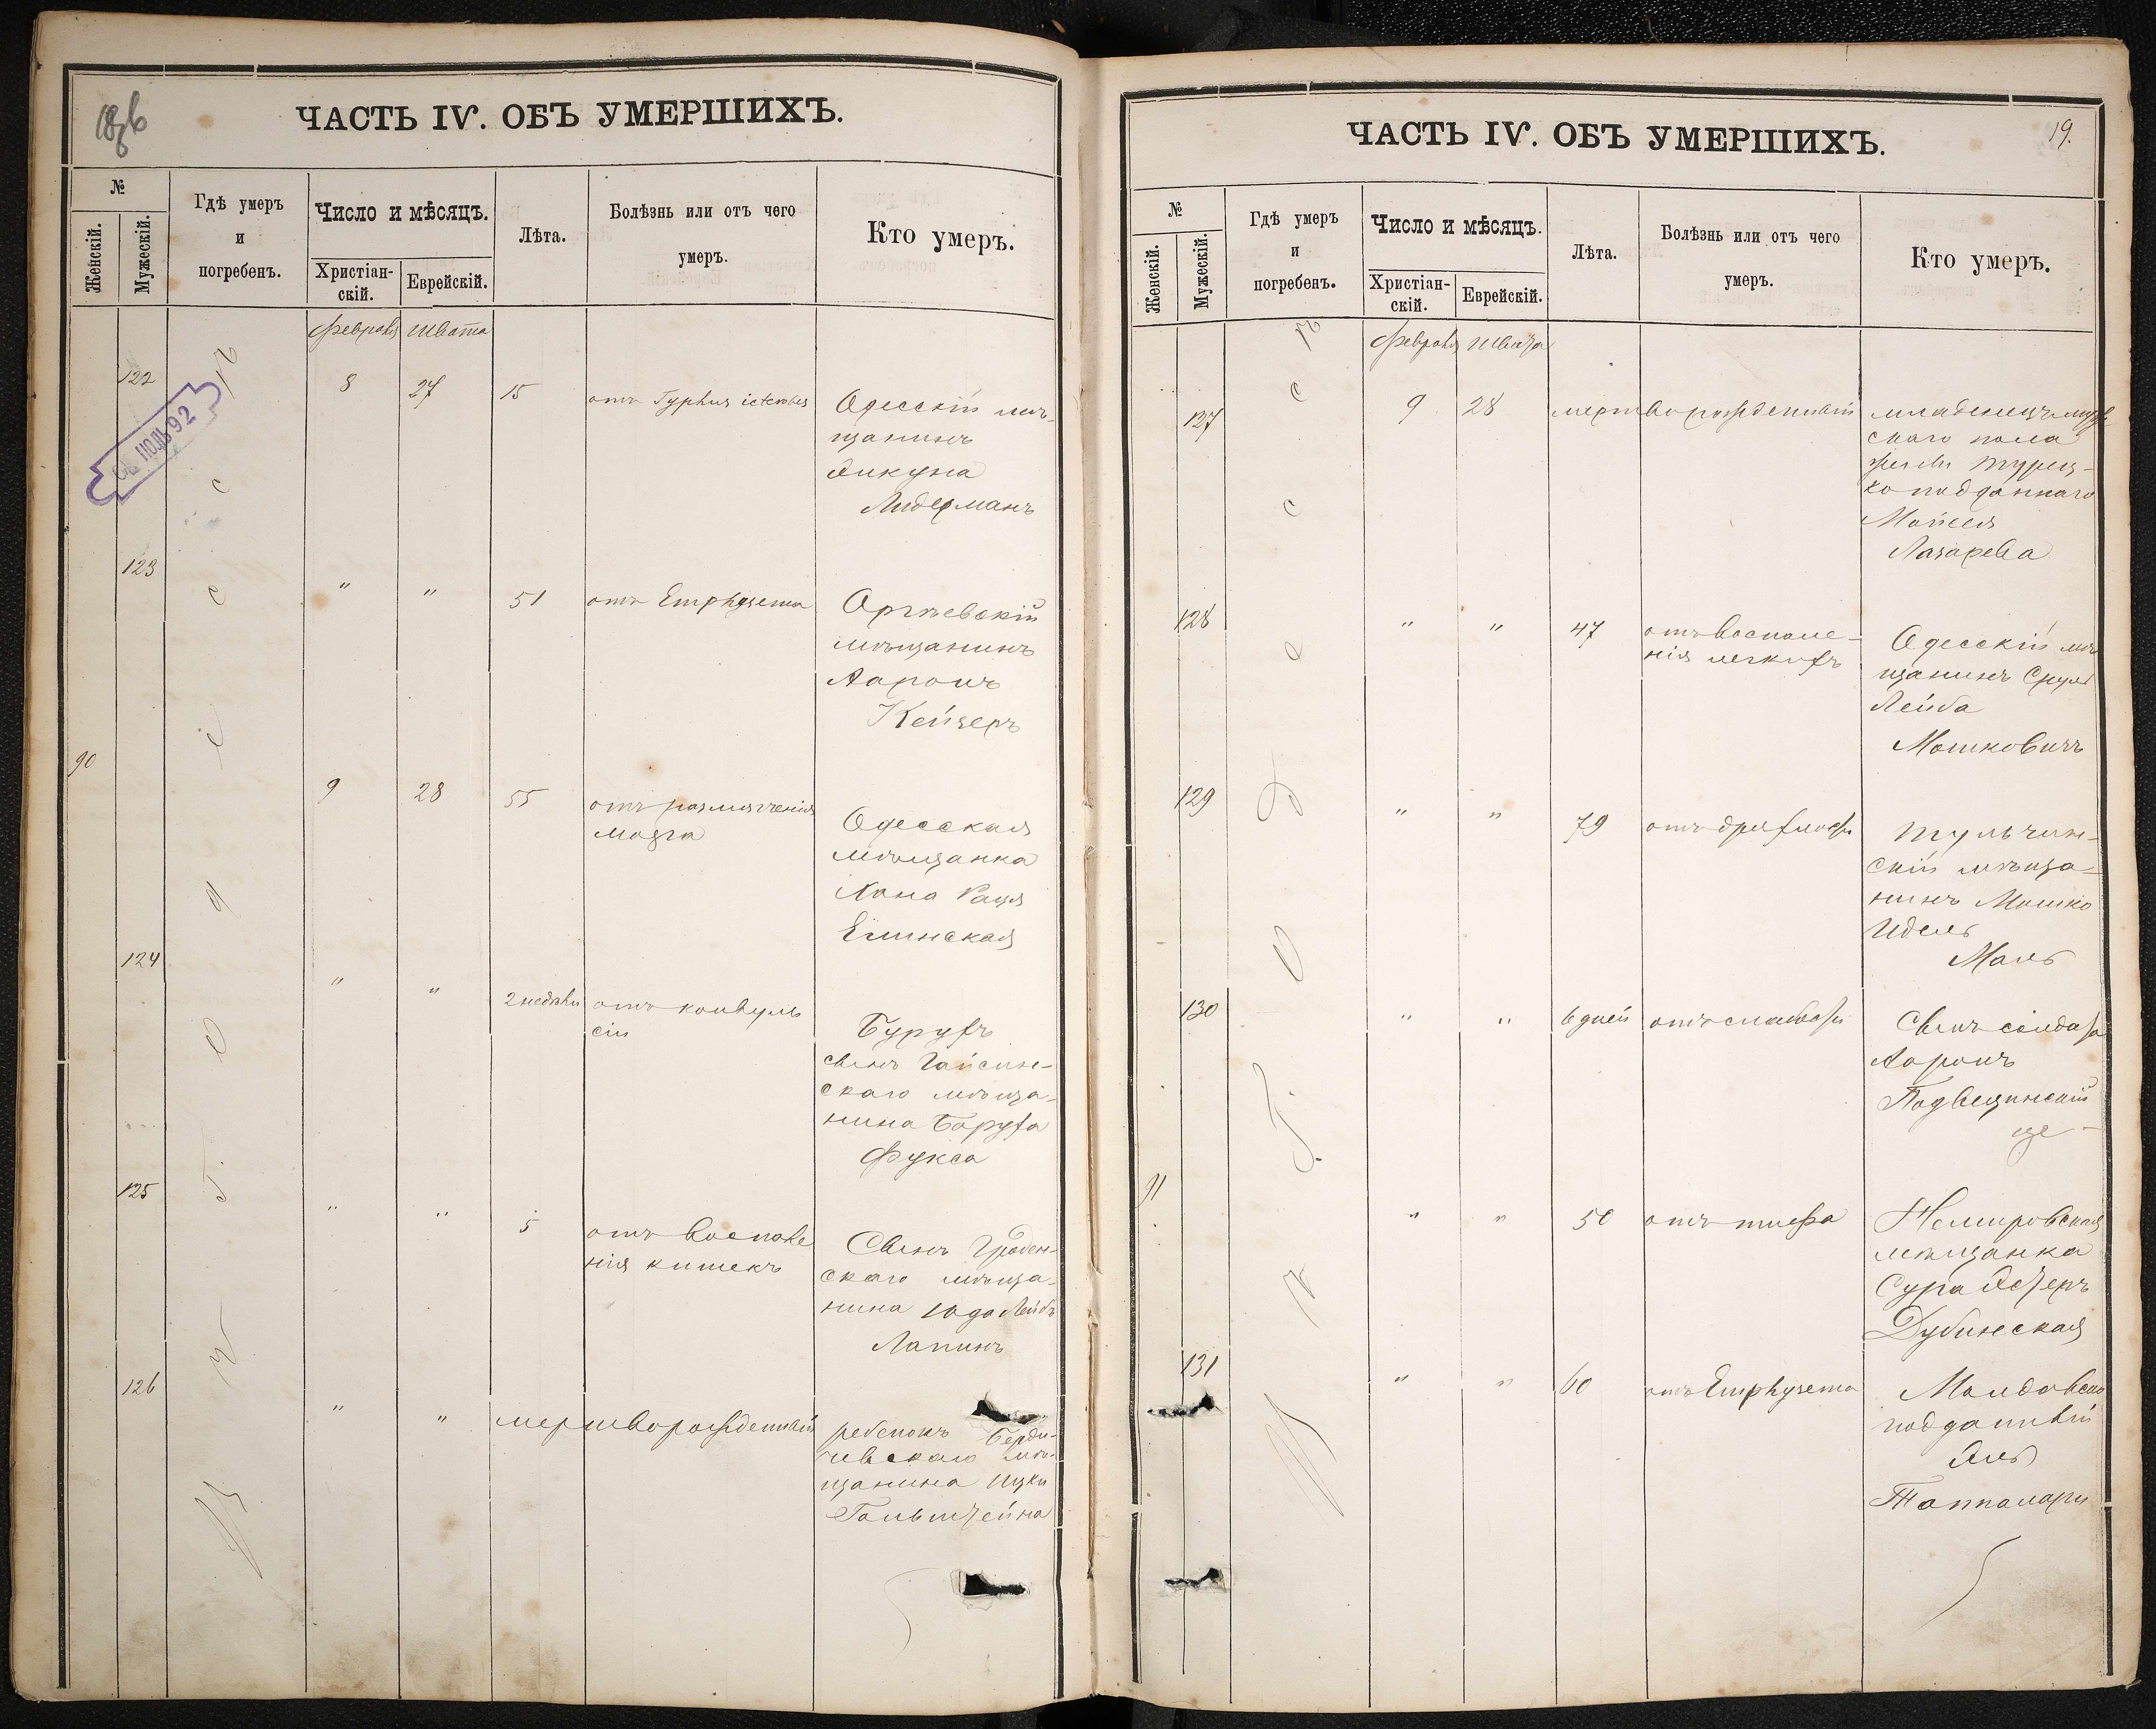 ЧАСТЬ IV. ОБЪ УМЕРШИХЪ.
№
Женскій.
Мужескій.
Гдѣ умеръ
и
погребенъ.
Число и мѣсяцъ.
Христіан-
скій.
Еврейскій.
Лѣта.
Болѣзнь или отъ чего
умеръ.
Кто умеръ.
Февраля Швата
122 8 27 15 отъ Typhus Одесскій мѣ-
щанинъ
Лидерманъ
ІЮЛЬ 92
123 " " 51 отъ Emphysema Оргѣевскій
мѣщанинъ
Ааронъ
Кейзеръ
90 9 28 55 отъ размягченія
мозга
Одесская
мѣщанка
Хана Рася
124 " " 2 недѣли отъ конвуль
сіи
Бурухъ
сынъ Гайсин-
скаго мѣща-
нина Боруха
Фукса
125 " " 5 отъ воспале
нія кишекъ
Сынъ Гроден-
скаго мѣща-
нина Юда Лейбъ
Лапинъ
126 " " мертворожденный ребенокъ Берди-
чевскаго мѣ-
щанина Ицки
Гольштейна
въ г. Одессѣ
ЧАСТЬ IV. ОБЪ УМЕРШИХЪ.
19.
№
Женскій.
Мужескій.
Гдѣ умеръ
и
погребенъ.
Число и мѣсяцъ.
Христіан-
скій.
Еврейскій.
Лѣта.
Болѣзнь или отъ чего
умеръ.
Кто умеръ.
Февраля Швата
127 9 28 мертворожденный младенецъ муж
скаго пола
Турец-
ко подданнаго
Мойсея
Лазарева
128 " " 47 отъ воспале-
нія легкихъ
Одесскій мѣ
щанинъ Сруль
Лейба
Мошковичъ
129 " " 79 отъ дряхлости Тульчин-
скій мѣща-
нинъ Мошко
Идель
Маль
130 " " 6 дней отъ слабости Сынъ солдата
Ааронъ
Подвещинскій
91 " " 50 отъ тифа Немировская
мѣщанка
Сура Эстеръ
Дубинская
131 " " 60 отъ Emphysema Молдавско
подданный
Эль
въ г. Одессѣ